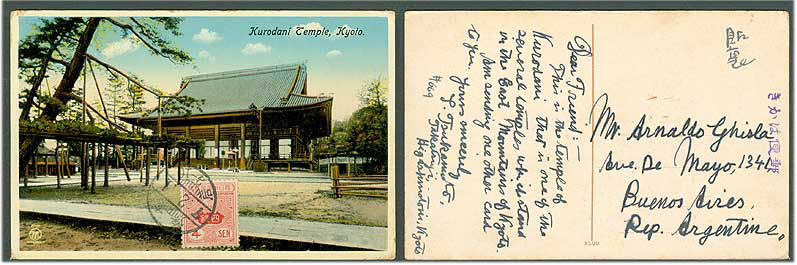 Kurodani Temple, Kyoto.
4 SEN
Dear Friend:-
This is the temple of
Kurodani that is one of the
several temples which stand
in the East Mountains of Kyoto.
I am sending one other card
to you.
Yours sincerely
Y. Tsukamoto,
Higashiyama, Kyoto
きかは便郵
Mr. Arnaldo Ghisla
Ave. De Mayo, 1341,
Buenos Aires.
Rep. Argentine,